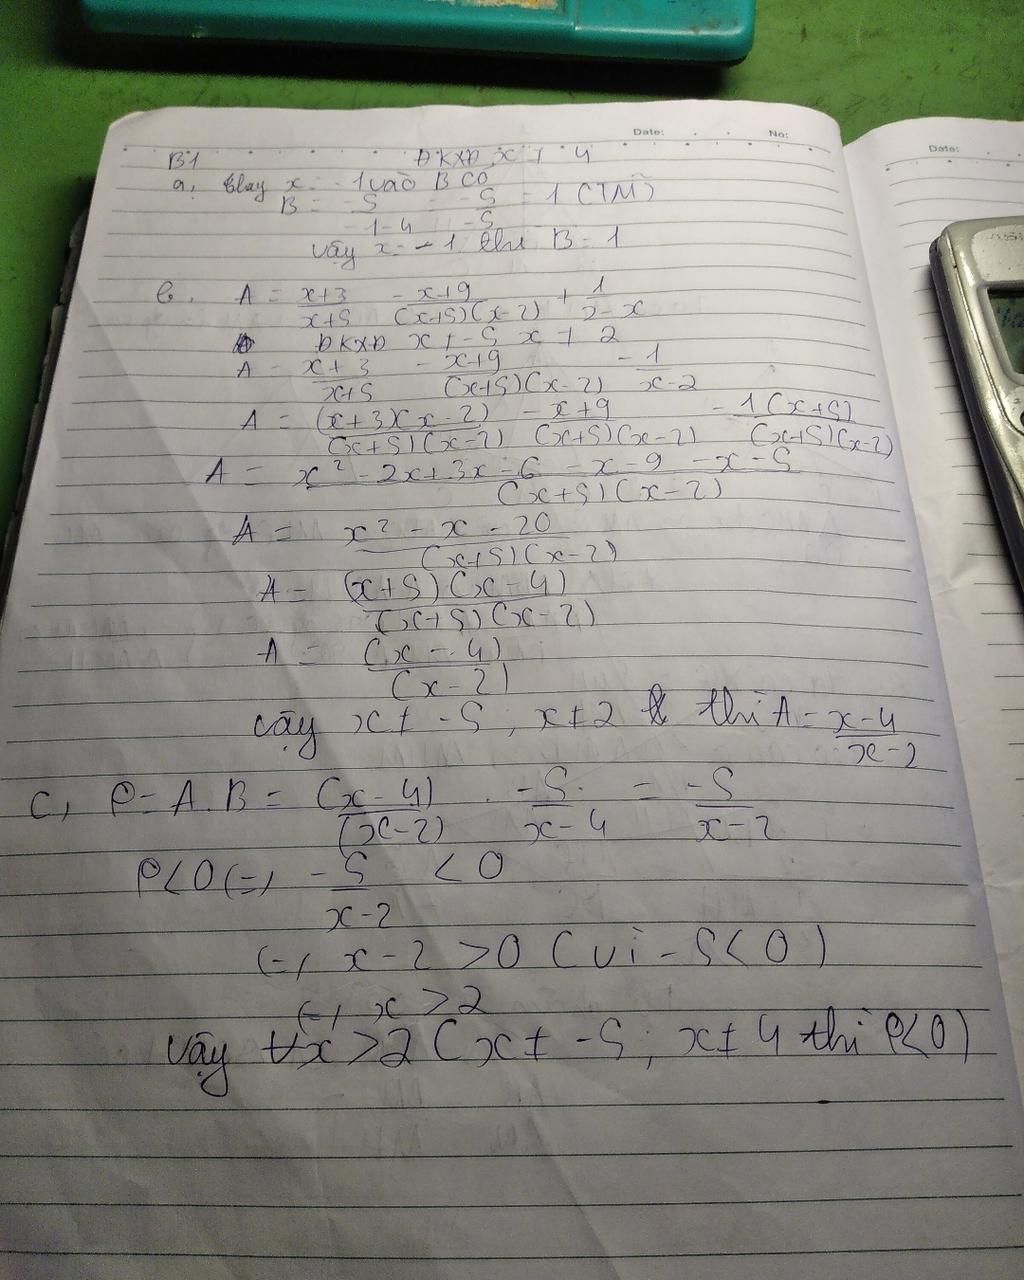 Date: No:
Date:
B1 ĐKXĐ x ≠ 4
a, thay x = -1 vào B có
B = -5/(-1-4) = -5/-5 = 1 (TM)
vậy x = -1 thì B = 1
b. A = (x+3)/(x+5) - (x+9)/((x+5)(x-2)) + 1/(2-x)
ĐKXĐ x ≠ -5 x ≠ 2
A = (x+3)/(x+5) - (x+9)/((x+5)(x-2)) - 1/(x-2)
A = (x+3)(x-2)/((x+5)(x-2)) - (x+9)/((x+5)(x-2)) - 1(x+5)/((x+5)(x-2))
A = (x² - 2x + 3x - 6 - x - 9 - x - 5)/((x+5)(x-2))
A = (x² - x - 20)/((x+5)(x-2))
A = (x+5)(x-4)/((x+5)(x-2))
A = (x-4)/(x-2)
vậy x ≠ -5; x ≠ 2 thì A = (x-4)/(x-2)
c, P = A.B = (x-4)/(x-2) . -5/(x-4) = -5/(x-2)
P<0 (=) -5/(x-2) < 0
(=) x-2 >0 (vì -5<0)
(=) x >2
vậy ∀x >2 (x ≠ -5; x ≠ 4 thì P<0)